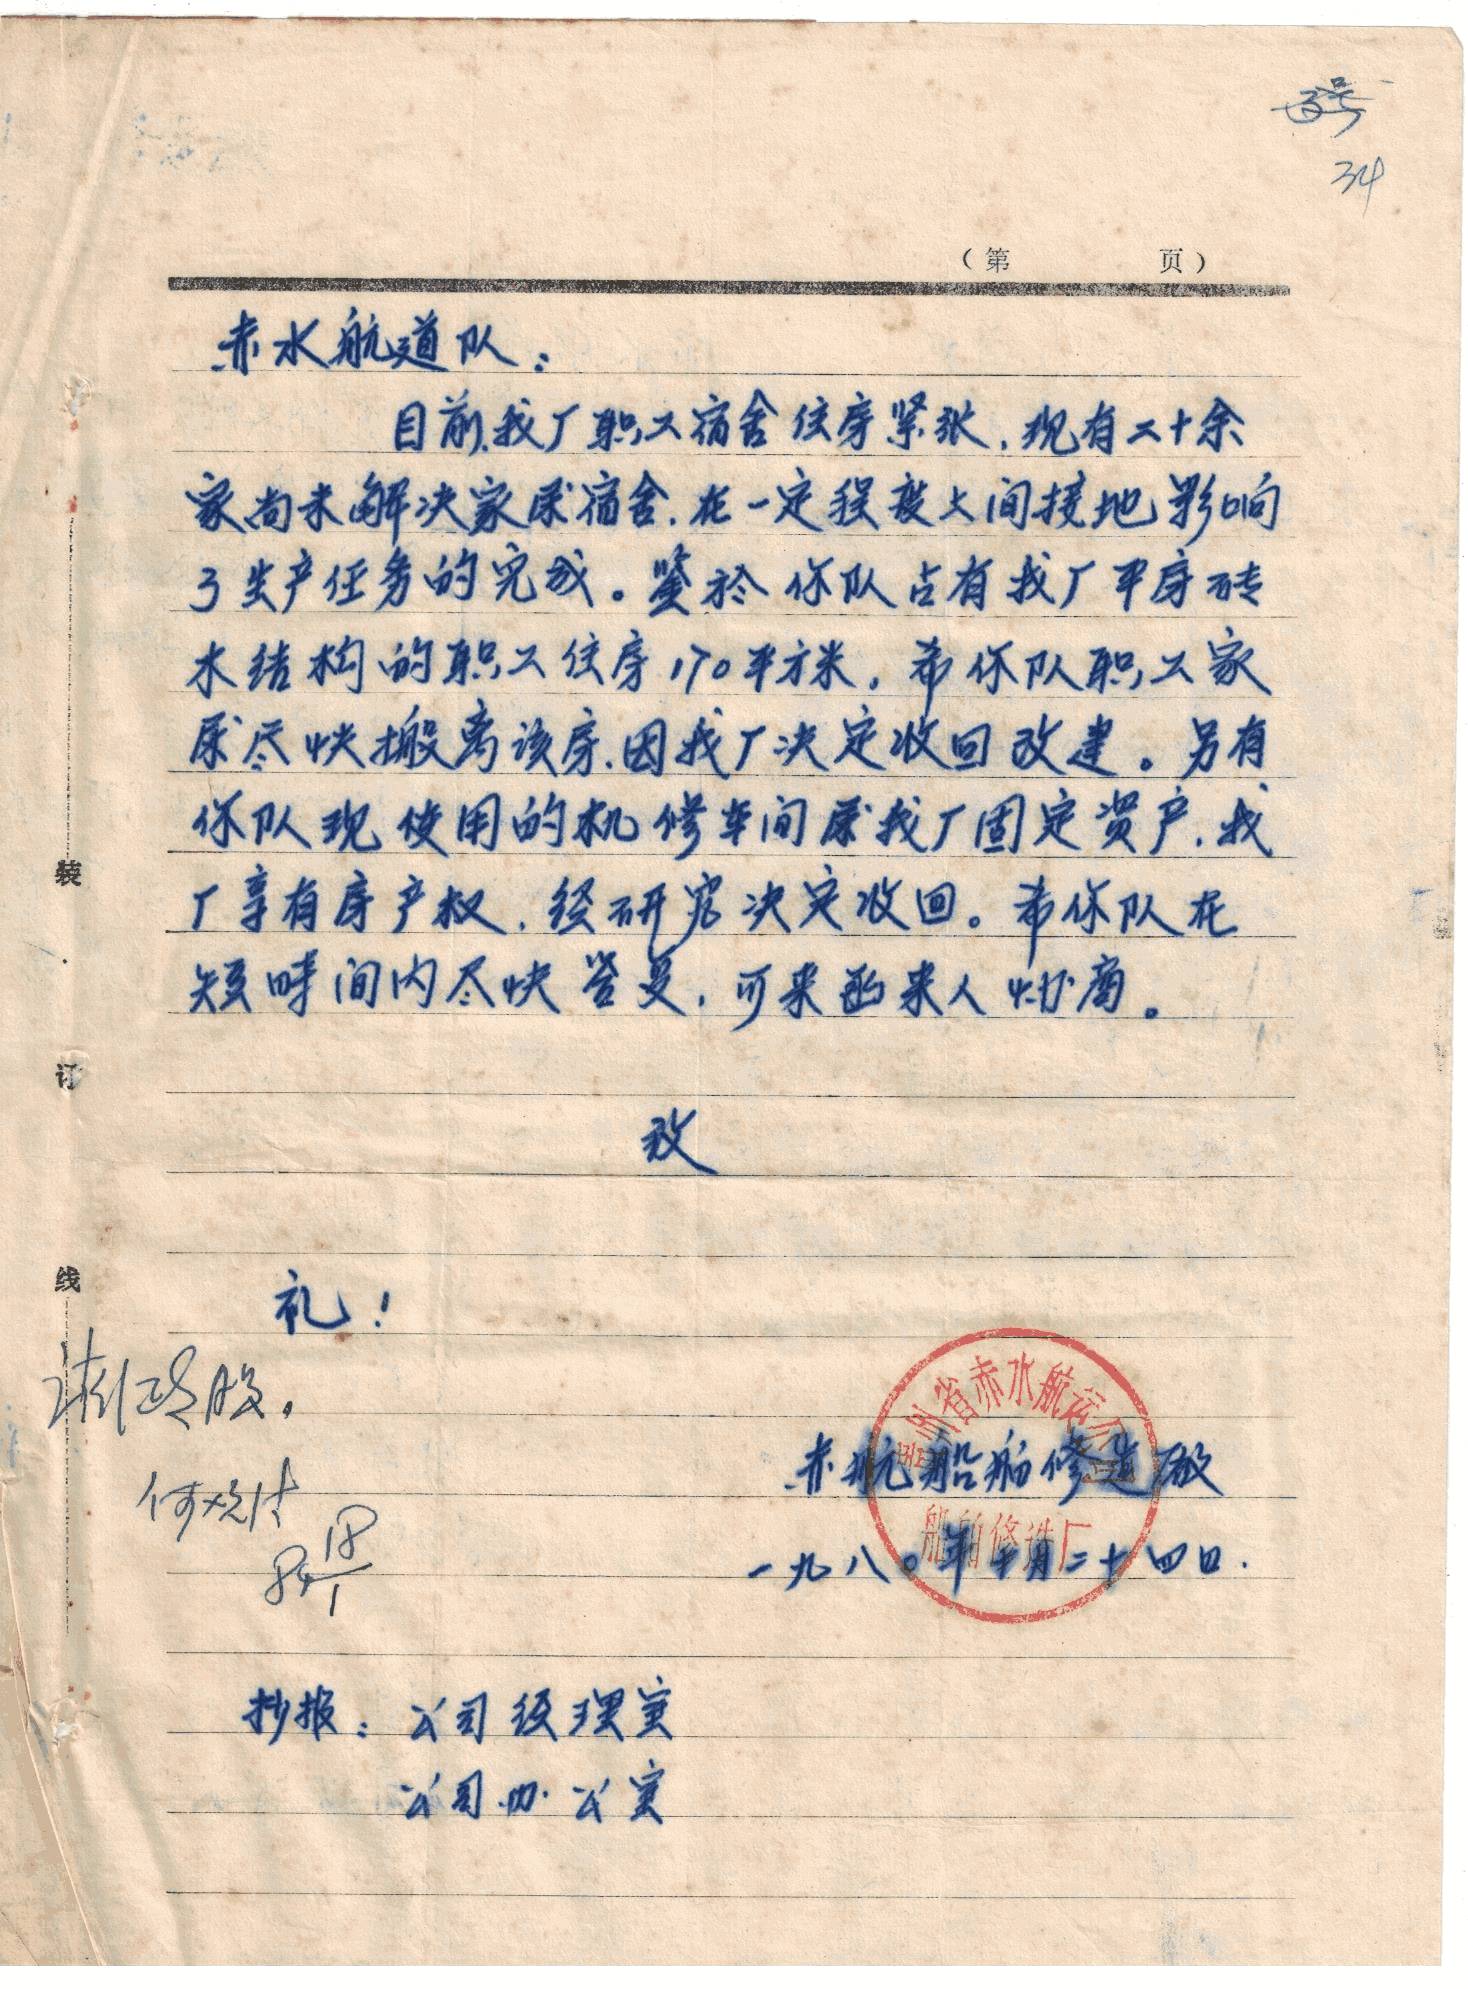 34
（第 页）
赤水航道队：
目前，我厂职工宿舍住房紧张，现有二十余
家尚未解决家属宿舍，在一定程度上间接地影响
了生产任务的完成。鉴於你队占有我厂平房砖
木结构的职工住房170平方米，希你队职工家
属尽快搬离该房，因我厂决定收回改建。另有
你队现使用的机修车间属我厂固定资产，我
厂享有房产权，经研究决定收回。希你队在
短时间内尽快答复，可来函来人协商。
致
礼！
赤航船舶修造厰
一九八〇年十月二十四日.
贵州省赤水航运公司
船舶修造厂
抄报：公司经理室
公司办公室
装
订
线